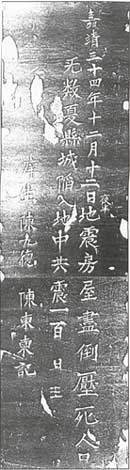 嘉靖三十四年十二月十二日夜半地震房屋盡倒壓死人口
无數夏縣城陷入地中共震一百日王
陳九德 陳東東記